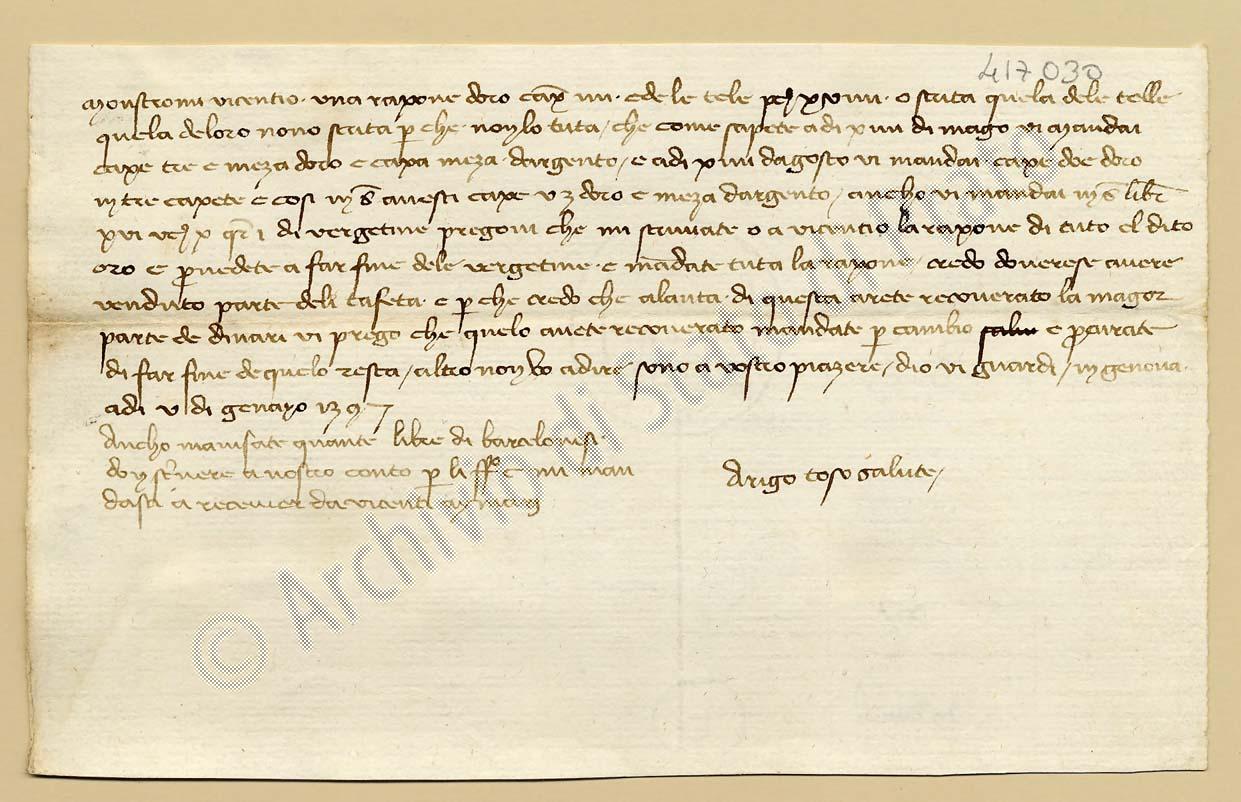 417030
Monstromi vicentio una raxone doro cax̄ iiii e de le tele xviiii o scrita quela dele telle
quela deloro nono scrita p che nonlo tuta / che come sapete adi xiiii di mago vi mandai
caxe tre e meza doro e caxa meza dargento / e adi xiiii dagosto vi mandai caxe doe doro
in tre capete e cosi avesti caxe v doro e meza dargento / ancho vi mandai libr̄
xvi x i di vergetine pregovi che mi scrivate o a vicentio la raxone di tuto el dito
oro e provedete a far fine dele vergetine e mādate tuta la raxone / credo doverese avere
venduto parte deli tafeta e p che credo che alauta di questa arete recoverato la magor
parte de dinari vi prego che quelo avete recoverato mandate p cambio e procurate
di far fine de quelo resta / altro non vo a dire sono a vostro piazere / dio vi guardi / in genova
adi v di genayo 1397
Ancho mavisate quante libre di barcelonesi
a nostro conto p li e mi man
dasti a recever da vicenti
Arigo toso salute /
© Archivio di Stato di Prato